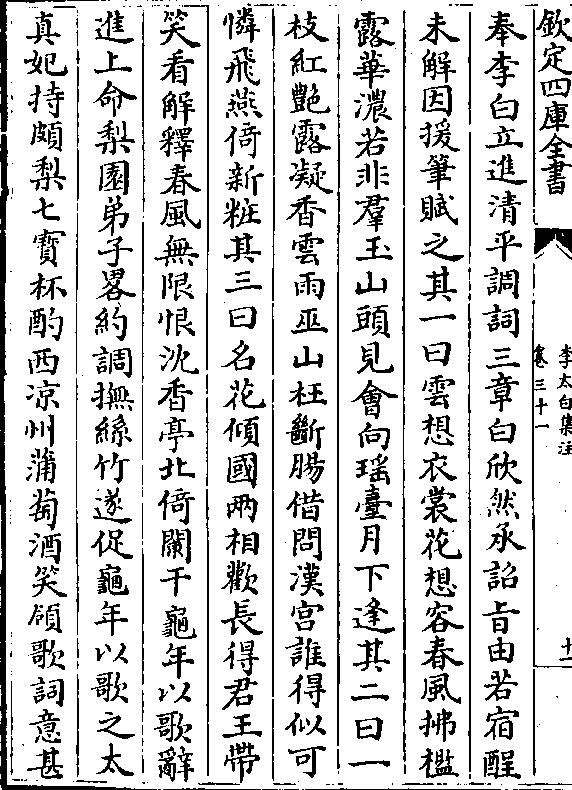 欽定四庫全書
李太白集注
卷三十一
十一
奉李白立進清平調詞三章白欣然承詔旨由若宿酲
未解因援筆賦之其一曰雲想衣裳花想容春風拂檻
露華濃若非羣玉山頭見會向瑶臺月下逢其二曰一
枝紅艷露凝香雲雨巫山枉斷腸借問漢宫誰得似可
憐飛燕倚新粧其三曰名花傾國兩相歡長得君王帶
笑看解釋春風無限恨沈香亭北倚闌干龜年以歌辭
進上命梨園弟子畧約調撫絲竹遂促龜年以歌之太
真妃持頗梨七寶杯酌西凉州蒲萄酒笑領歌詞意甚